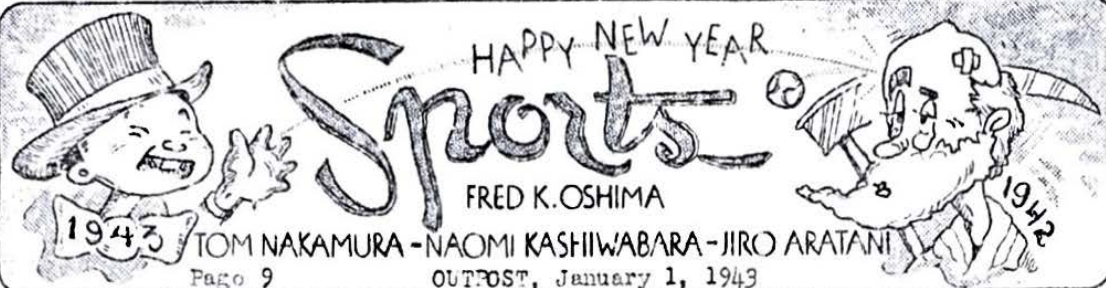 HAPPY NEW YEAR
Sports
FRED K. OSHIMA
1943
1942
TOM NAKAMURA - NAOMI KASHIWABARA - JIRO ARATANI
Page 9 OUTPOST, January 1, 1943